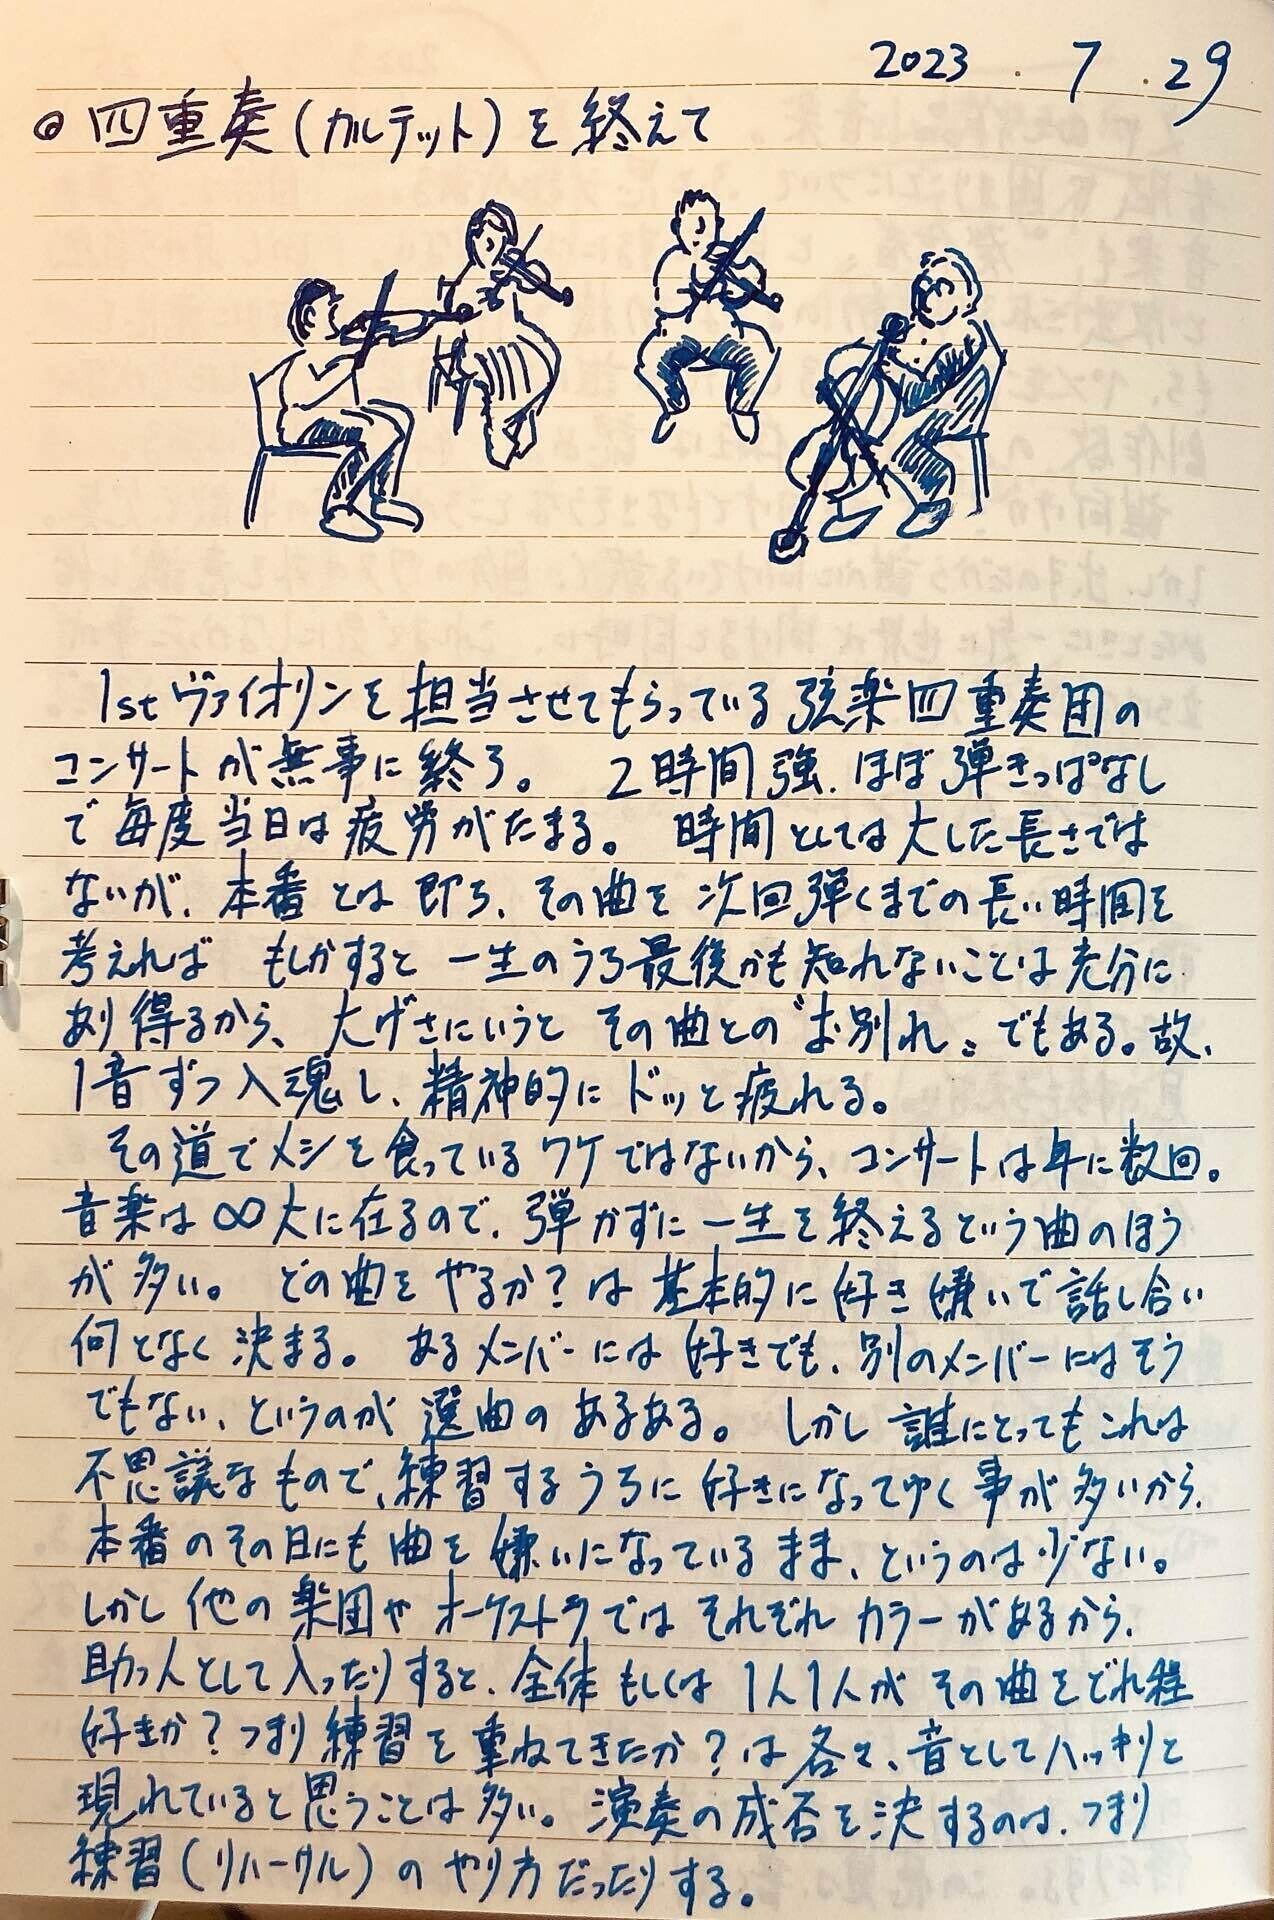 2023 . 7 . 29
◎ 四重奏(カルテット)を終えて
1stヴァイオリンを担当させてもらっている弦楽四重奏団の
コンサートが無事に終る。 2時間強、ほぼ弾きっぱなし
で毎度当日は疲労がたまる。 時間としては大した長さでは
ないが、本番とは即ち、その曲を次回弾くまでの長い時間を
考えれば もしかすると一生のうち最後かも知れないことは充分に
あり得るから、大げさにいうと その曲との〝お別れ〟でもある。故、
1音ずつ入魂し、精神的にドッと疲れる。
その道でメシを食っているワケではないから、コンサートは年に数回。
音楽は∞大に在るので、弾かずに一生を終えるという曲のほう
が多い。 どの曲をやるか?は基本的に好き嫌いで話し合い
何となく決まる。 あるメンバーには好きでも、別のメンバーにはそう
でもない、というのが選曲のあるある。 しかし誰にとってもこれは
不思議なもので、練習するうちに好きになってゆく事が多いから、
本番のその日にも曲を嫌いになっているまま、というのは少ない。
しかし他の楽団やオーケストラではそれぞれカラーがあるから、
助っ人として入ったりすると、全体もしくは1人1人がその曲をどれ程
好きか?つまり練習を重ねてきたか?は各々、音としてハッキリと
現れていると思うことは多い。演奏の成否を決するのは、つまり
練習(リハーサル)のやり方だったりする。